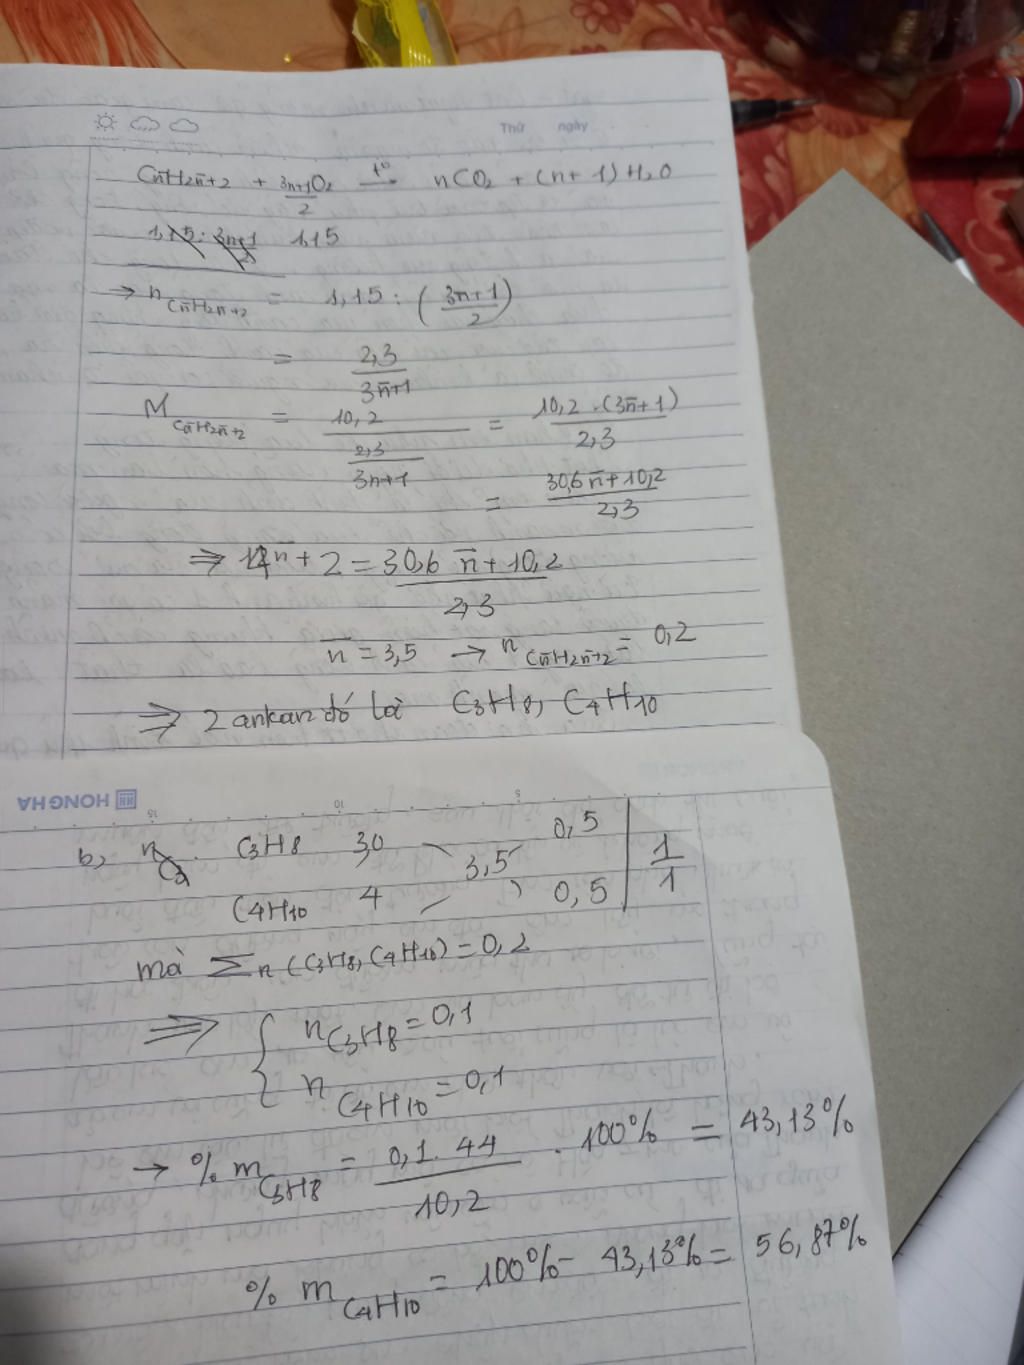 Thứ ngày
Cn̄H2n̄+2 + 3n+1/2 O2 —t°→ nCO2 + (n+1)H2O
1,15 : 3n+1/2 1,15
→ n Cn̄H2n̄+2 = 1,15 : (3n+1/2)
= 2,3/3n̄+1
M Cn̄H2n̄+2 = 10,2/(2,3/3n+1) = 10,2.(3n̄+1)/2,3
= 30,6n̄+10,2/2,3
⇒ 14n̄ + 2 = 30,6 n̄ + 10,2/2,3
n̄ = 3,5 → n Cn̄H2n̄+2 = 0,2
⇒ 2 ankan đó là C3H8, C4H10
HONG HA
15 10 5
b, C3H8 3,0 0,5
3,5 1/1
C4H10 4 0,5
mà Σn (C3H8, C4H10) = 0,2
⇒ { n C3H8 = 0,1
n C4H10 = 0,1
→ % m C3H8 = 0,1.44/10,2 . 100% = 43,13%
% m C4H10 = 100% - 43,13% = 56,87%